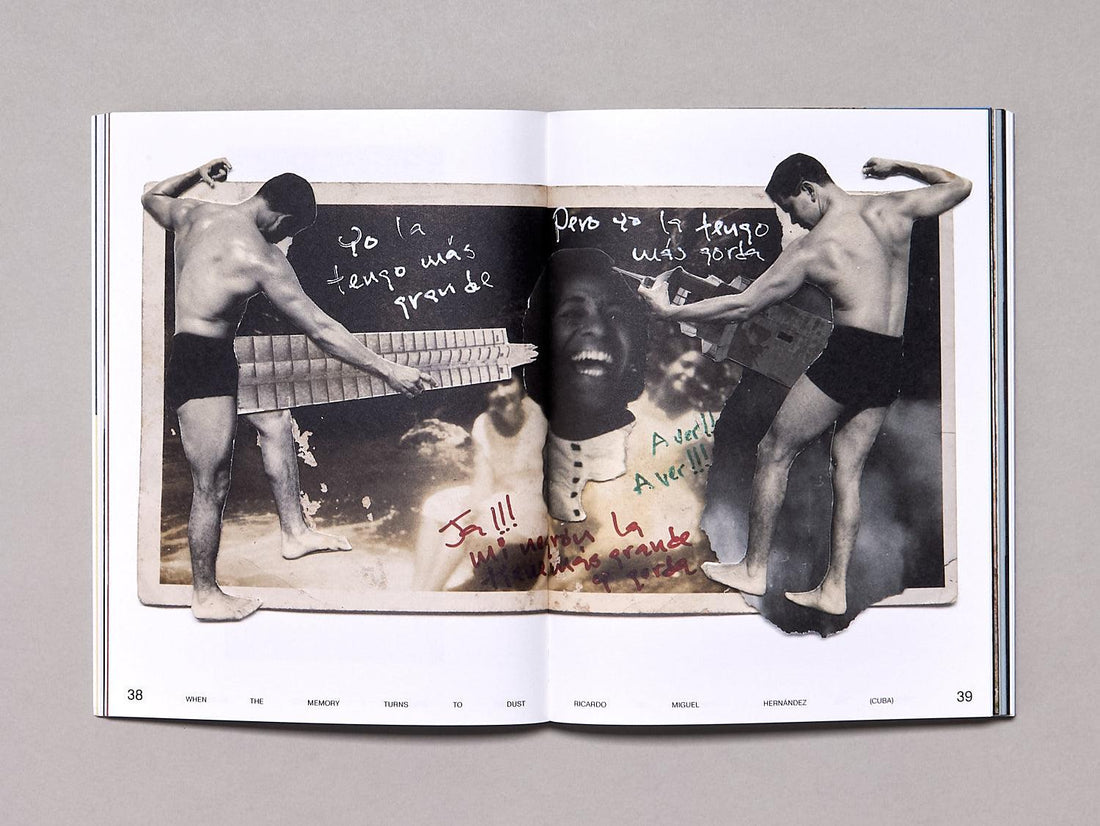 Yo la
tengo más
grande
Pero yo la tengo
más gorda
A ver!!
A ver!!!
Ja!!!
mi negrón la
más grande
y gorda
38
WHEN THE MEMORY TURNS TO DUST RICARDO MIGUEL HERNÁNDEZ (CUBA)
39